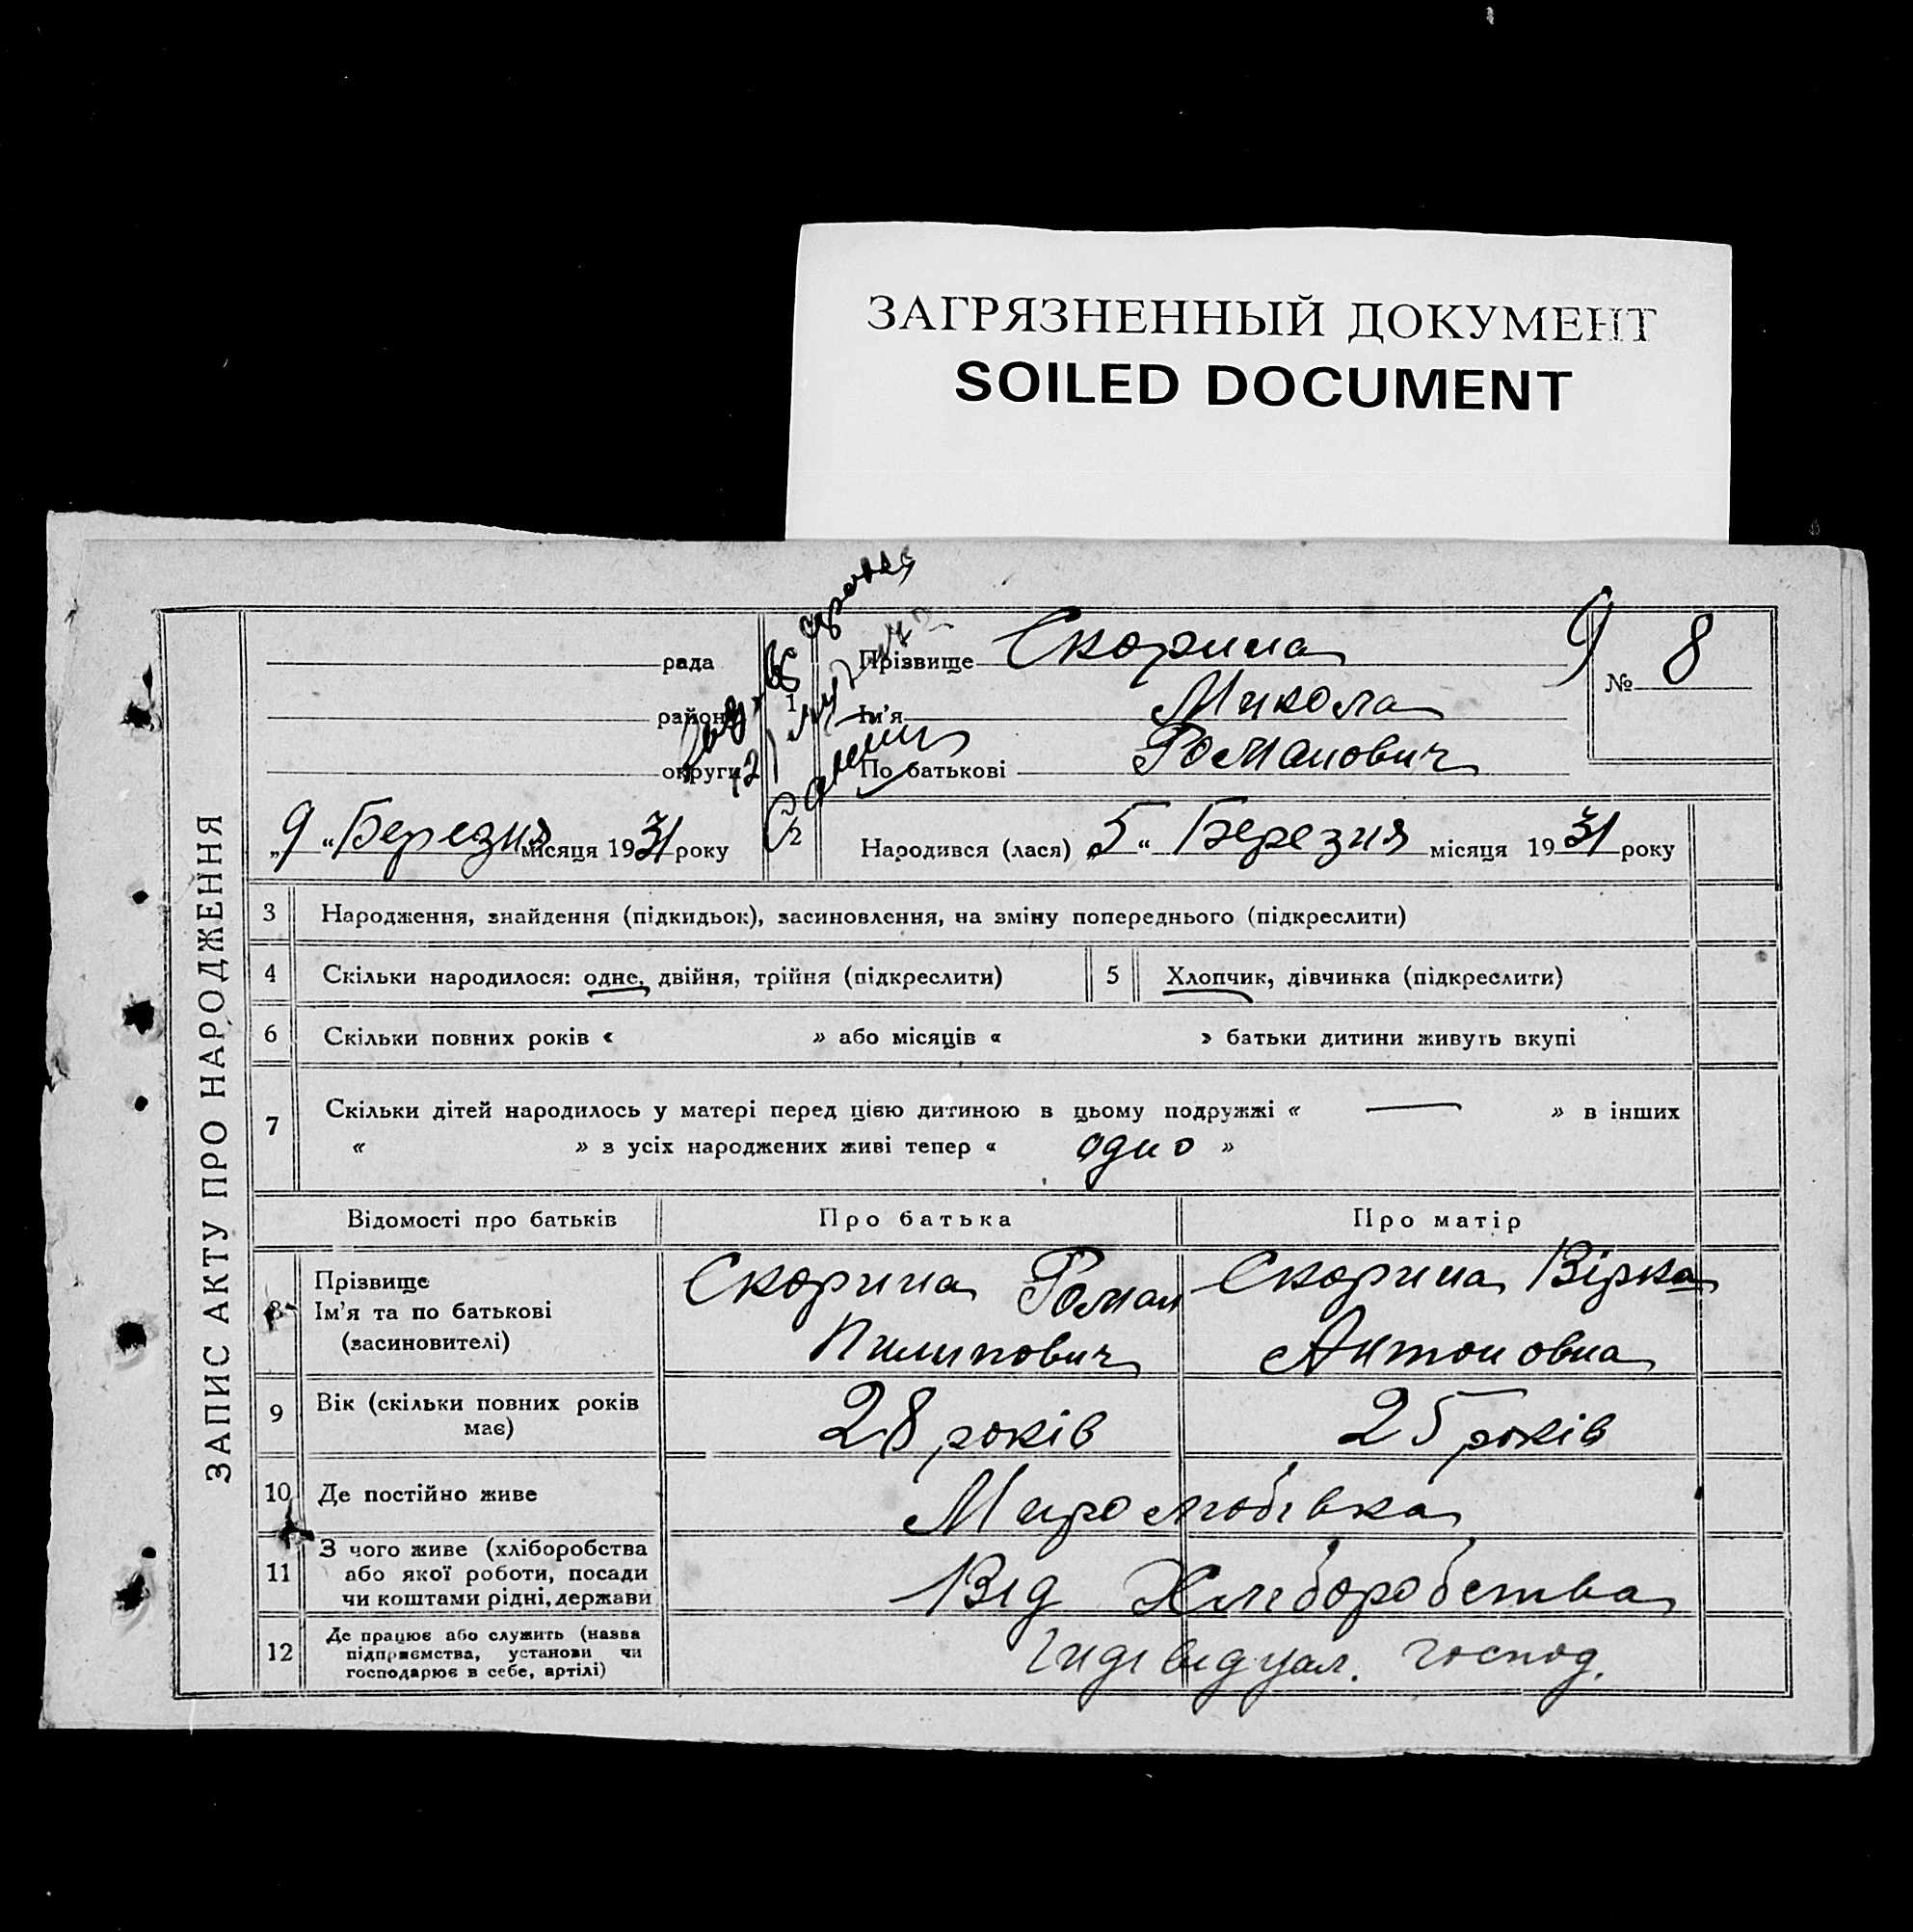 ЗАГРЯЗНЕННЫЙ ДОКУМЕНТ
SOILED DOCUMENT
ЗАПИС АКТУ ПРО НАРОДЖЕННЯ
рада
район
округи
1
Прізвище Скорина
Ім'я Микола
По батькові Романович
9
№ 8
„9“ Березня місяця 1931 року
2
Народився (лася) „5“ Березня місяця 1931 року
3 Народження, знайдення (підкидьок), засиновлення, на зміну попереднього (підкреслити)
4 Скільки народилося: одне, двійня, трійня (підкреслити)
5 Хлопчик, дівчинка (підкреслити)
6 Скільки повних років « » або місяців « » батьки дитини живуть вкупі
7 Скільки дітей народилось у матері перед цією дитиною в цьому подружжі « — » в інших
« » з усіх народжених живі тепер « одно »
Відомості про батьків Про батька Про матір
8 Прізвище
Ім'я та по батькові
(засиновителі)
Скорина Роман
Пилипович
Скорина Вірка
Антоновна
9 Вік (скільки повних років
має)
28 років 25 років
10 Де постійно живе Миролюбівка
11 З чого живе (хліборобства
або якої роботи, посади
чи коштами рідні, держави
Від Хліборобства
12 Де працює або служить (назва
підприємства, установи чи
господарює в себе, артілі)
Індівідуал. господ.